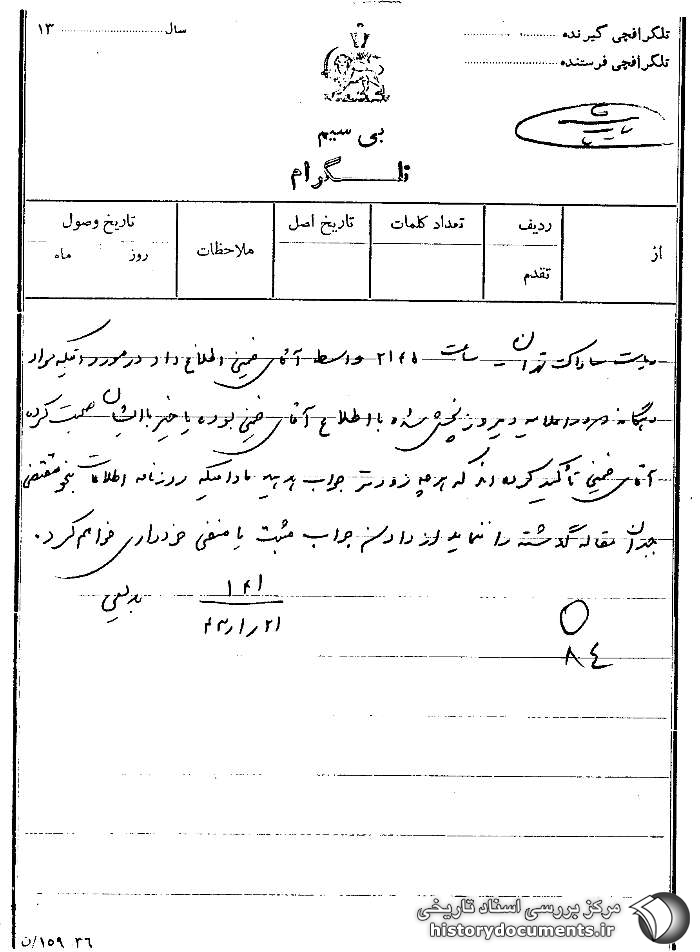 تلگرافچی گیرنده
سال ۱۳
تلگرافچی فرستنده
بی سیم
تلگرام
از
ردیف
تقدم
تعداد کلمات
تاریخ اصل
ملاحظات
تاریخ وصول
روز ماه
ریاست ساواک تهران ساعت ۲۱۴۵ واسطه آقای خمینی اطلاع داد در مورد اینکه مواد
دهگانه در اعلامیه دیروز پخش شده با اطلاع آقای خمینی بوده یا خیر با ایشان صحبت کرده
آقای خمینی تأکید کرده اند که هر چه زودتر جواب بدهید مادامیکه روزنامه اطلاعات بنحو مقتضی
جبران مقاله گذشته را ننماید از دادن جواب مثبت یا منفی خودداری خواهم کرد.
۱۴۱
۴۳/۱/۲۱
بدیعی
۸٤
۳۶ ۱۵۹/ن
مرکز بررسی اسناد تاریخی
historydocuments.ir